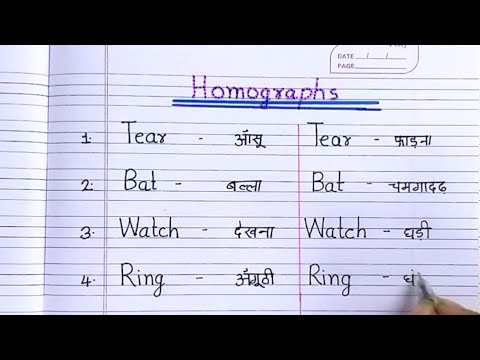 DATE / /
PAGE
Homographs
1. Tear - आँसू Tear - फाड़ना
2. Bat - बल्ला Bat - चमगादड़
3. Watch - देखना Watch - घड़ी
4. Ring - अँगूठी Ring - घं